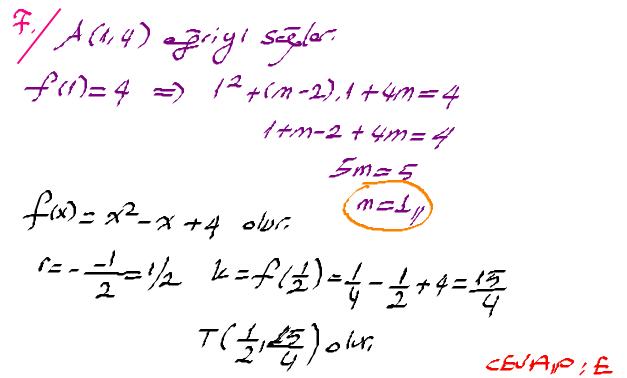 7./ A(1,4) eğriyi sağlar.
f(1)=4 ⇒ 1²+(m-2).1+4m=4
1+m-2+4m=4
5m=5
m=1//
f(x)=x²-x+4 olur.
r=-\frac{-1}{2}=1/2 k=f(\frac{1}{2})=\frac{1}{4}-\frac{1}{2}+4=\frac{15}{4}
T(\frac{1}{2},\frac{15}{4}) olur.
CEVAP: E